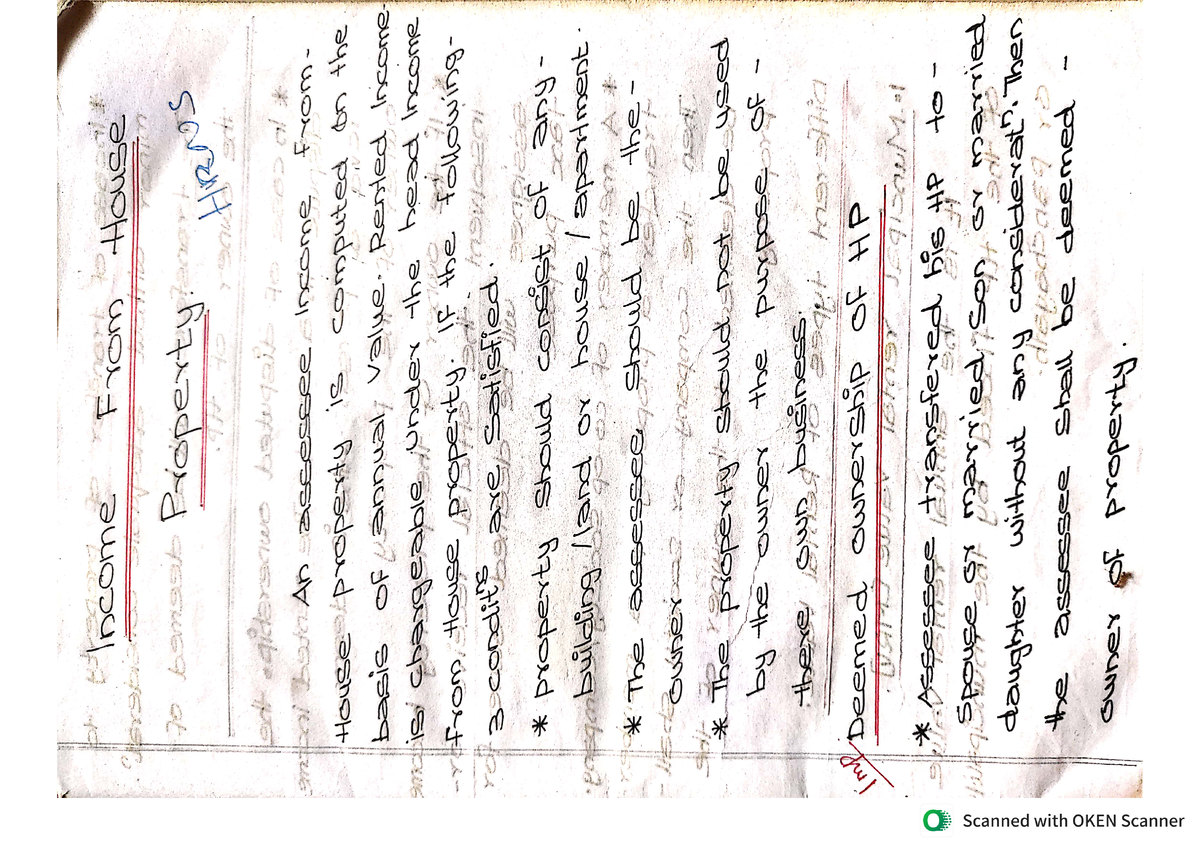 Income From House
Property.
HRDS
An assessee Income from -
House property is computed on the
basis of annual value. Rented Income
is chargeable under the head Income
from House property. If the following -
3 conditns are satisfied.
* property should consist of any -
building /land or house / apartment.
* The assessee should be the -
owner
* The property should not be used
by the owner the purpose of -
there own business.
Imp Deemed ownership of HP
* Assessee transfered his HP to -
Spouse or married Son or married
daughter without any consideratn. Then
the assessee shall be deemed -
owner of property.
Scanned with OKEN Scanner